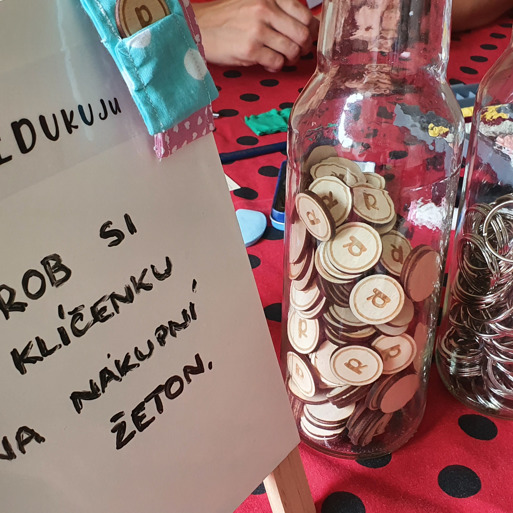 EDUKUJU
ROB SI
KLÍČENKU
NA NÁKUPNÍ
ŽETON.